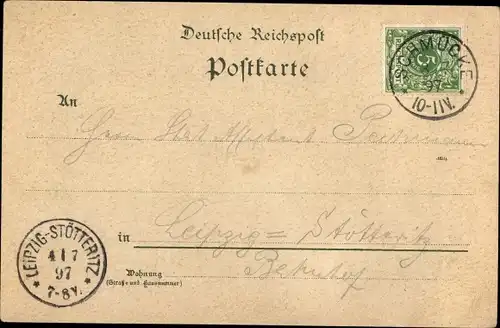 Deutsche Reichspost
Postkarte
SCHMÜCKE
97
10-11V.
5
An
Herrn
in Leipzig=Stötteritz
Bahnhof
LEIPZIG-STÖTTERITZ
4 7
97
7-8V.
Wohnung
(Straße und Hausnummer)